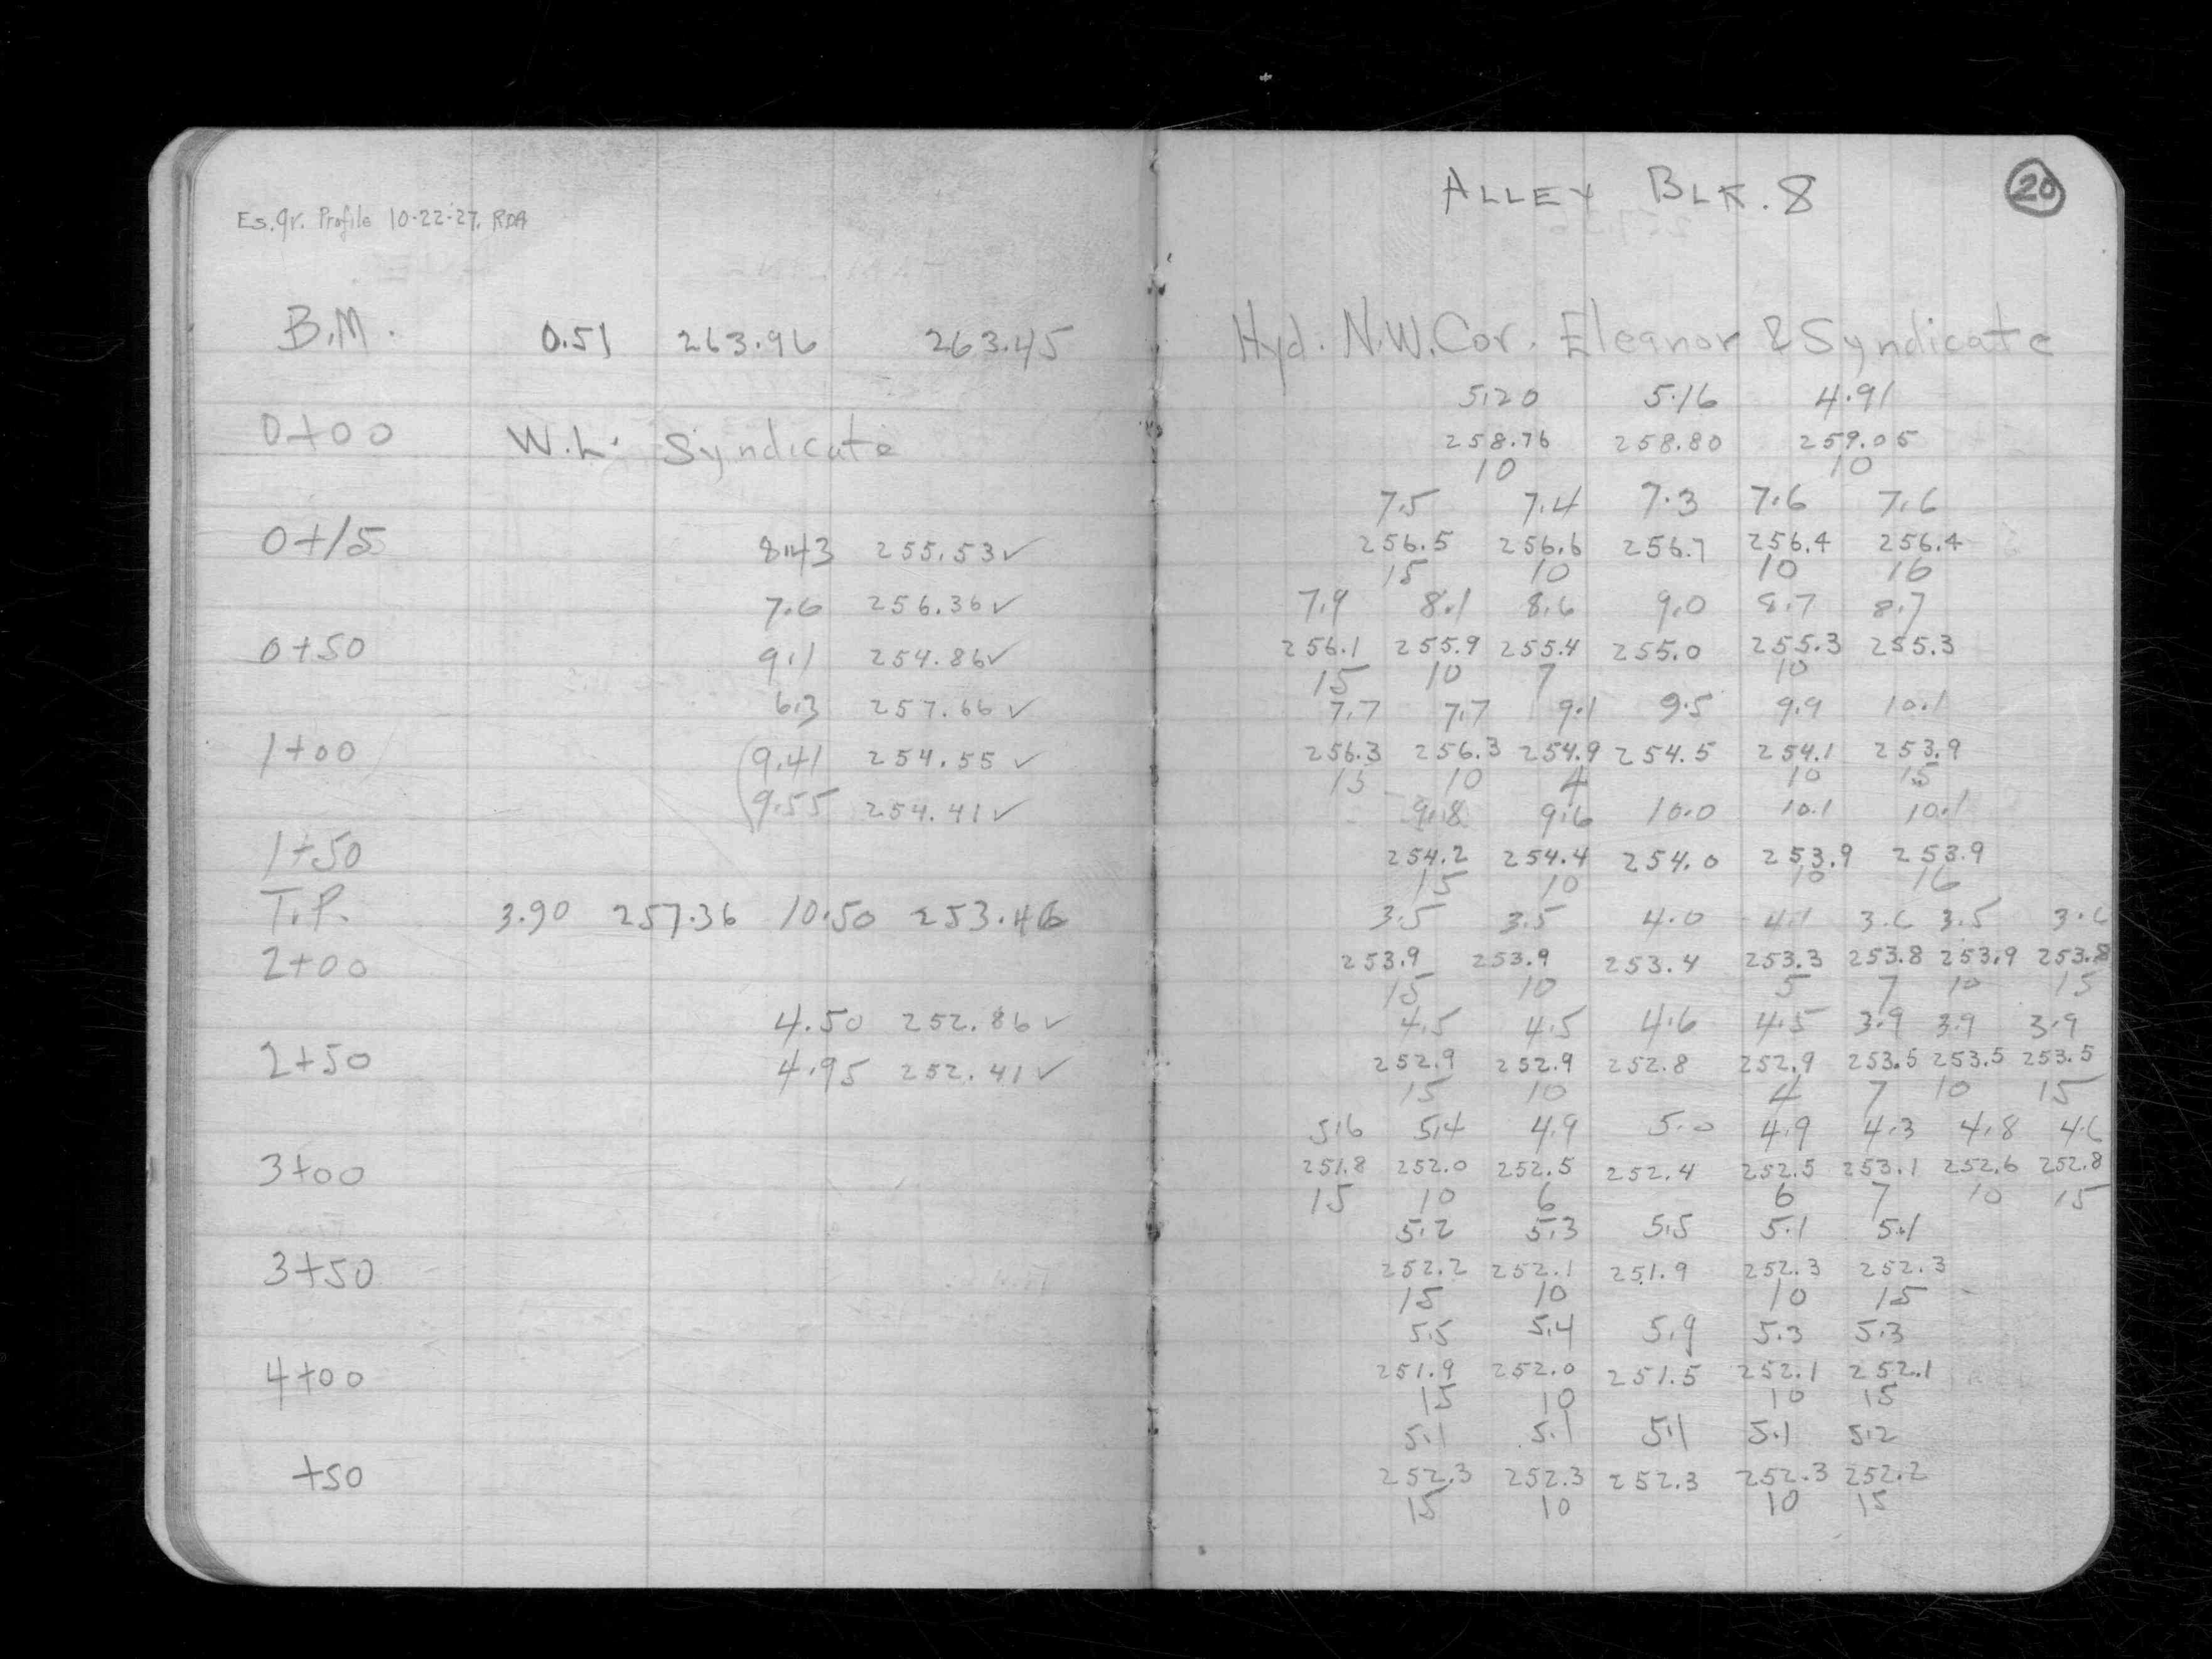 Es.gr. Profile 10-22-27. RDA
B.M. 0.51 263.96 263.45
0+00 W.L. Syndicate
0+15 8.43 255.53✓
7.6 256.36✓
0+50 9.1 254.86✓
6.3 257.66✓
1+00 (9.41 254.55✓
(9.55 254.41✓
1+50
T.P. 3.90 257.36 10.50 253.46
2+00
4.50 252.86✓
2+50 4.95 252.41✓
3+00
3+50
4+00
+50
ALLEY BLK. 8
20
Hyd. N.W. Cor. Eleanor & Syndicate
5.20 5.16 4.91
258.76 258.80 259.05
10 10
7.5 7.4 7.3 7.6 7.6
256.5 256.6 256.7 256.4 256.4
15 10 10 16
7.9 8.1 8.6 9.0 8.7 8.7
256.1 255.9 255.4 255.0 255.3 255.3
15 10 7 10
7.7 7.7 9.1 9.5 9.9 10.1
256.3 256.3 254.9 254.5 254.1 253.9
15 10 4 10 15
9.8 9.6 10.0 10.1 10.1
254.2 254.4 254.0 253.9 253.9
15 10 10 16
3.5 3.5 4.0 4.1 3.6 3.5 3.6
253.9 253.9 253.4 253.3 253.8 253.9 253.8
15 10 5 7 10 15
4.5 4.5 4.6 4.5 3.9 3.9 3.9
252.9 252.9 252.8 252.9 253.5 253.5 253.5
15 10 4 7 10 15
5.6 5.4 4.9 5.0 4.9 4.3 4.8 4.6
251.8 252.0 252.5 252.4 252.5 253.1 252.6 252.8
15 10 6 6 7 10 15
5.2 5.3 5.5 5.1 5.1
252.2 252.1 251.9 252.3 252.3
15 10 10 15
5.5 5.4 5.9 5.3 5.3
251.9 252.0 251.5 252.1 252.1
15 10 10 15
5.1 5.1 5.1 5.1 5.2
252.3 252.3 252.3 252.3 252.2
15 10 10 15